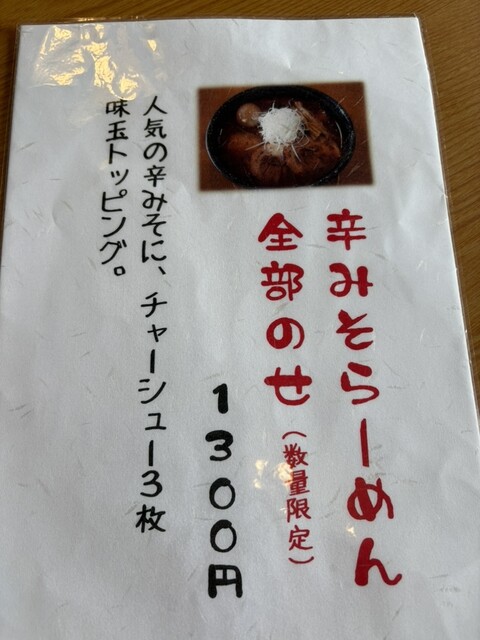 辛みそらーめん
全部のせ(数量限定)
1300円
人気の辛みそに、チャーシュー3枚
味玉トッピング。